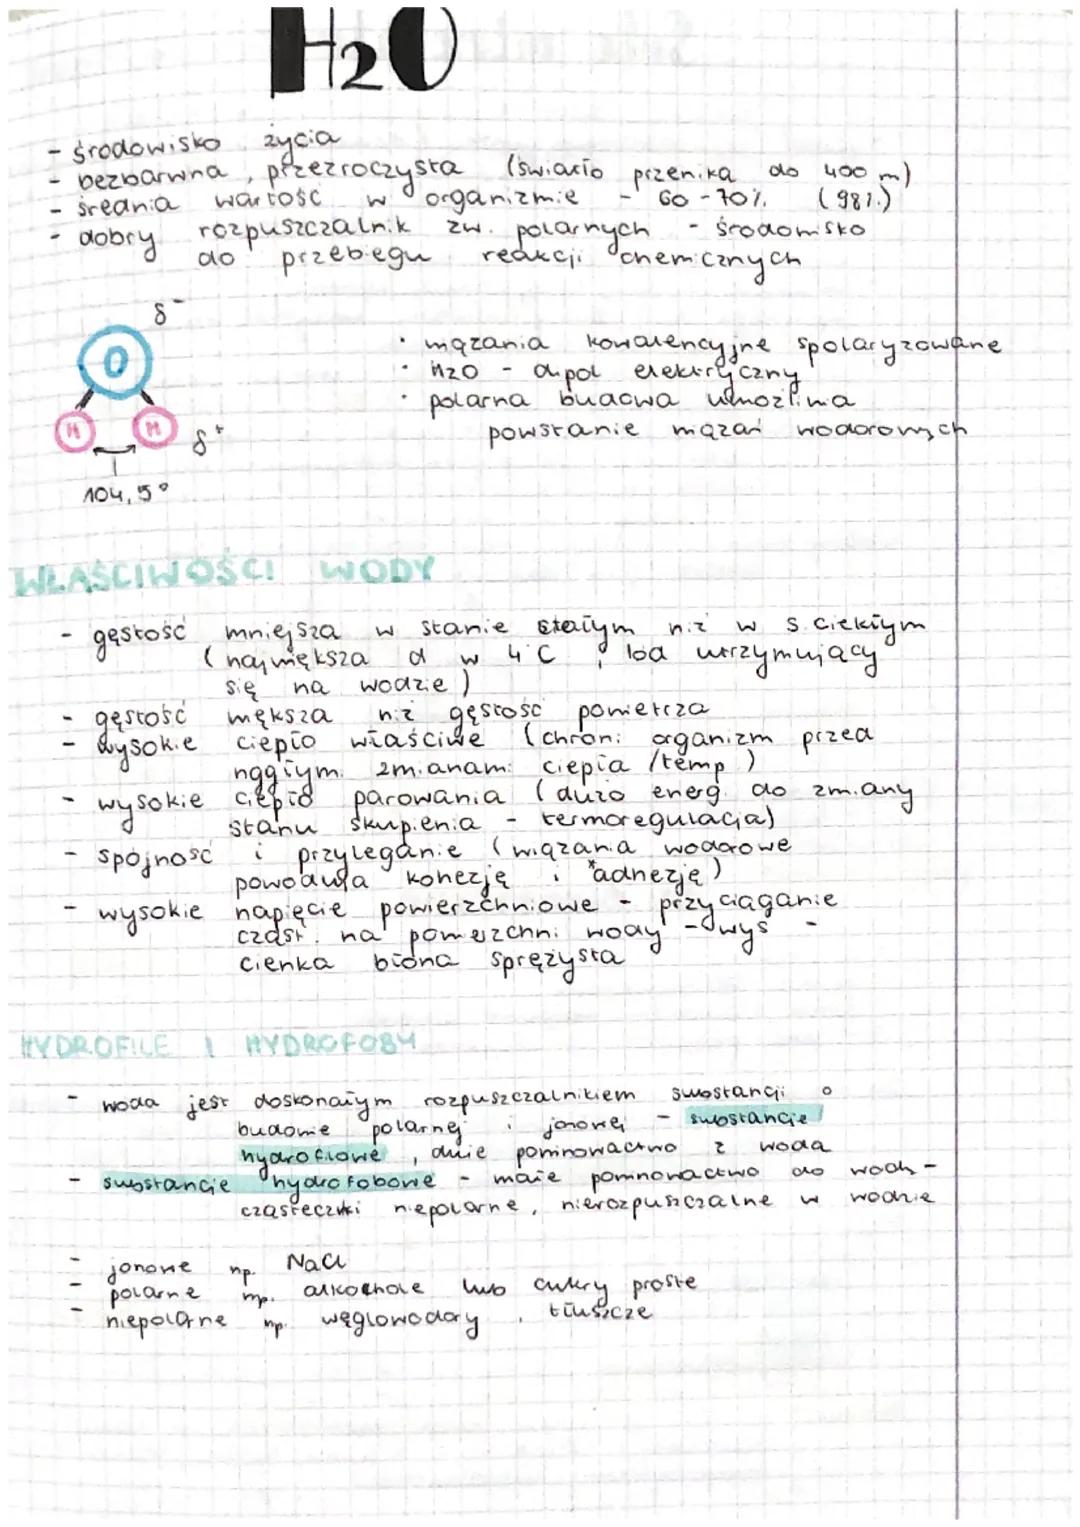 H2O
- środowisko życia
- bezbarwna, przezroczysta (światło przenika do 400 m)
- średnia wartość w organizmie - 60-70% (98%)
- dobry rozpuszczalnik zw. polarnych - środowisko
do przebiegu reakcji chemicznych
δ-
O
H H δ+
104,5°
• wiązania kowalencyjne spolaryzowane
• H2O - dipol elektryczny
• polarna budowa umożliwia
powstanie wiązań wodorowych
WŁAŚCIWOŚCI WODY
- gęstość mniejsza w stanie stałym niż w s. ciekłym
(największa d w 4°C, lód utrzymujący
się na wodzie)
- gęstość większa niż gęstość powietrza
- wysokie ciepło właściwe (chroni organizm przed
nagłymi zmianami ciepła /temp)
- wysokie ciepło parowania (dużo energ. do zmiany
stanu skupienia - termoregulacja)
- spójność i przyleganie (wiązania wodorowe
powodują kohezję i *adhezję)
- wysokie napięcie powierzchniowe - przyciąganie
cząst. na powierzchni wody - wys -
cienka błona sprężysta
HYDROFILE I HYDROFOBY
- woda jest doskonałym rozpuszczalnikiem substancji o
budowie polarnej i jonowej - substancje
hydrofilowe, duże powinowactwo z woda
- substancje hydrofobowe - małe powinowactwo do wody -
cząsteczki niepolarne, nierozpuszczalne w wodzie
- jonowe np. NaCl
- polarne np. alkohole lub cukry proste
- niepolarne np. węglowodory, tłuszcze